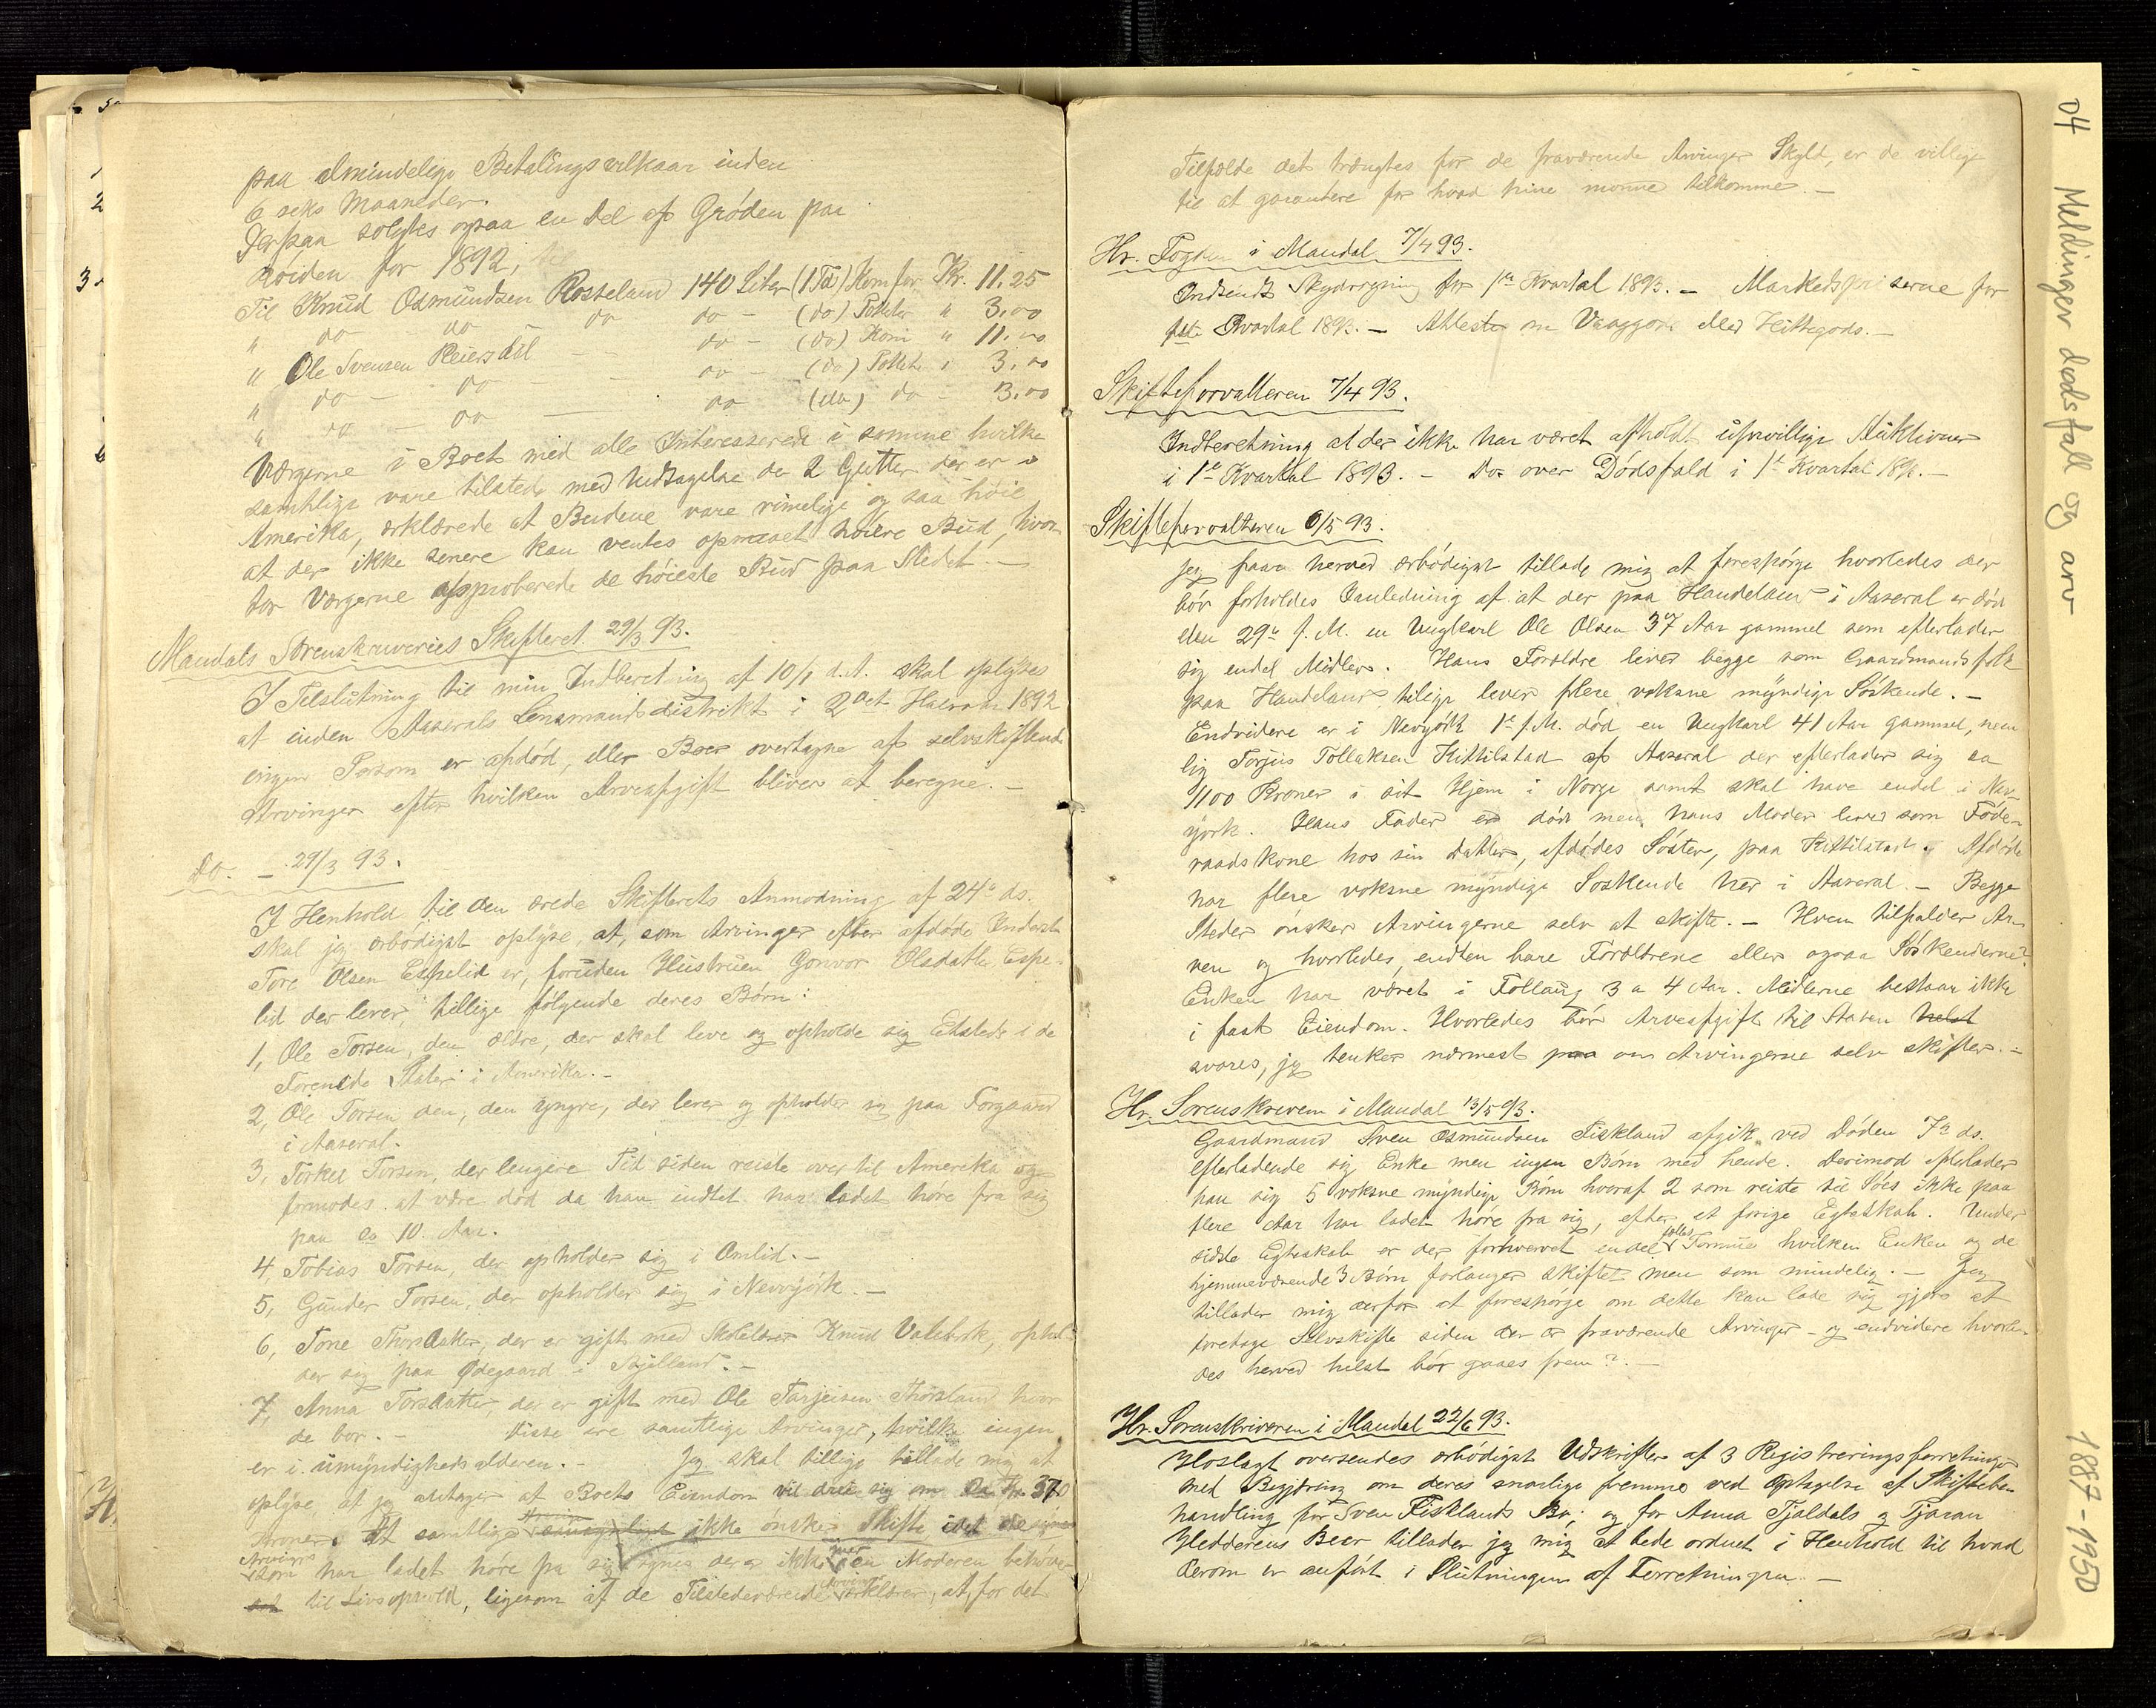 paa almindelige Betalingsvilkaar inden
6 seks Maaneder.
Derpaa solgtes ogsaa en Del af Grøden paa
Roiden for 1892,
Til Knud Osmundsen Rosseland 140 Liter (1 Td) Korn for Kr. 11.25
" do do do do - (do) Poteter " 3.00
" Ole Svensen Reiersdal - - do - (do) Korn " 11.00
" do - do - - do - (do) Potet " 3.00
" do - do - do (do) do - 3.00
Værgerne i Boet med alle Interesserede i samme hvilke
samtlige vare tilstede med Undtagelse de 2 Gutter der er i
Amerika, erklærede at Budene vare rimelige og saa høie
at der ikke senere kan ventes opnaaet høiere Bud, hvor-
for Værgerne approberede de høieste Bud paa Stedet. -
Mandals Sorenskriveries Skifteret 29/3 93.
I Tilslutning til min Indberetning af 10/1 d.A. skal oplyses
at inden Aaserals Lensmandsdistrikt i 2det Halvaar 1892
ingen Person er afdød, eller Boer overtagne af selvskiftende
Arvinger efter hvilken Arveafgift bliver at beregne. -
Do. - 29/3 93.
I Henhold til den ærede Skifterets Anmodning af 24de ds.
skal jeg ærbødigst oplyse, at, som Arvinger efter afdøde Inderst
Tore Olsen Espelid er, foruden Hustruen Gonvor Olsdatter Espe-
lid der lever, tillige følgende deres Børn:
1, Ole Torsen, den ældre, der skal leve og opholde sig Etsteds i de
Forenede Stater i Amerika. -
2, Ole Torsen den, den yngre, der lever og opholder sig paa Torgaard
i Aaseral.
3, Torkel Torsen, der lengere Tid siden reiste over til Amerika og
formodes at være død da han indtet har ladet høre fra sig
paa ca 10. Aar.
4, Tobias Torsen, der opholder sig i Omlid. -
5, Gunder Torsen, der opholder sig i Newyørk. -
6, Tone Thorsdatter, der er gift med Skolelærer Knud Valebrok, ophol-
der sig paa Ødegaard i Bjelland. -
7, Anna Torsdatter, der er gift med Ole Tarjeisen Thorsland hvor
de bor. - Disse ere samtlige Arvinger, hvilke ingen
er i umyndighedsalderen. - Jeg skal tillige tillade mig at
oplyse at jeg antager at Boets Eiendom vil dreie sig om ca Kr 370
Kroner. At samtlige ikke ønsker Skifte idet de
Arvinger som har ladet høre fra sig synes der er ikke mer en Moderen behøver
til Livsophold, ligesom at de Tilstedeværende Arvinger erklærer, at, for det
Tilfælde det trængtes for de fraværende Arvinger Skyld, er de villige
til at garantere for hvad hine monne tilkomme. -
Hr. Fogden i Mandal 7/4 93.
Indsendt Skydsregning for 1ste Kvartal 1893. - Markedspriserne for
1ste Kvartal 1893. - Attester om Vraggods eller Hittegods. -
Skifteforvalteren 7/4 93.
Indberetning at der ikke har været afholdt ufrivillige Auktioner
i 1ste Kvartal 1893. - Do over Dødsfald i 1ste Kvartal 1893. -
Skifteforvalteren 6/5 93.
Jeg faar herved ærbødigst tillade mig at forespørge hvorledes der
bør forholdes Danledning af at der paa Handeland i Aaseral er død
den 29de f. M. en Ungkarl Ole Olsen 37 Aar gammel som efterlader
sig endel Midler. Hans Foreldre lever begge som Gaardmandsfolk
paa Handeland, tilige lever flere voksne myndige Søskende. -
Endvidere er i Newyørk 1ste f.M. død en Ungkarl 41 Aar gammel, nem-
lig Torjus Tolleksen Kittilstad af Aaseral der efterlader sig ca
1100 Kroner i sit Hjem i Norge samt skal have endel i New-
yørk. Hans Fader er død men hans Moder lever som Føde-
raadskone hos sin Datter, afdødes Søster, paa Kittilstad. Afdøde
har flere voksne myndige Søskende her i Aaseral. - Begge
Steder ønsker Arvingerne selv at skifte. - Hvem tilfalder Ar-
ven og hvorledes, endten bare Foreldrene eller ogsaa Søskenderne?
Enken har været i Follaug 3 a 4 Aar. Midlerne bestaar ikke
i fast Eiendom. Hvorledes bør Arveafgift til Staten helst
svares, jeg tenker nærmest paa om Arvingerne selv skifter. -
Hr. Sorenskriveren i Mandal 13/5 93.
Gaardmand Sven Osmundsen Fiskland afgik ved Døden 7de ds.
efterladende sig Enke men ingen Børn med hende. Derimod efterlader
han sig 5 voksne myndige Børn hveraf 2 som reiste til Søes ikke paa
flere Aar har ladet høre fra sig, efter et forige Egteskab. Under
sidste Egteskab er der forhvervet endel fælles Formue hvilken Enken og de
hjemmeværende 3 Børn forlanger skiftet men som mindelig. - Jeg
tillader mig derfor at forespørge om dette kan lade sig gjøre at
foretage Selvskifte siden der er fraværende Arvinger - og endvidere hvorle-
des herved helst bør gaaes frem? -
Hr. Sorenskriveren i Mandal 22/6 93.
Hoslagt oversendes ærbødigst Udskrifter af 3 Registreringsforretninger
med Begjæring om deres snarlige fremme ved Optagelse af Skiftebe-
handling for Sven Fisklands Bo; og for Anna Tjaldals og Tjøran
Hedderens Boer tillader jeg mig at bede ordnet i Henhold til hvad
derom er anført i Slutningen af Forretningen. -
04 Meldinger dødsfall og arv 1887-1950